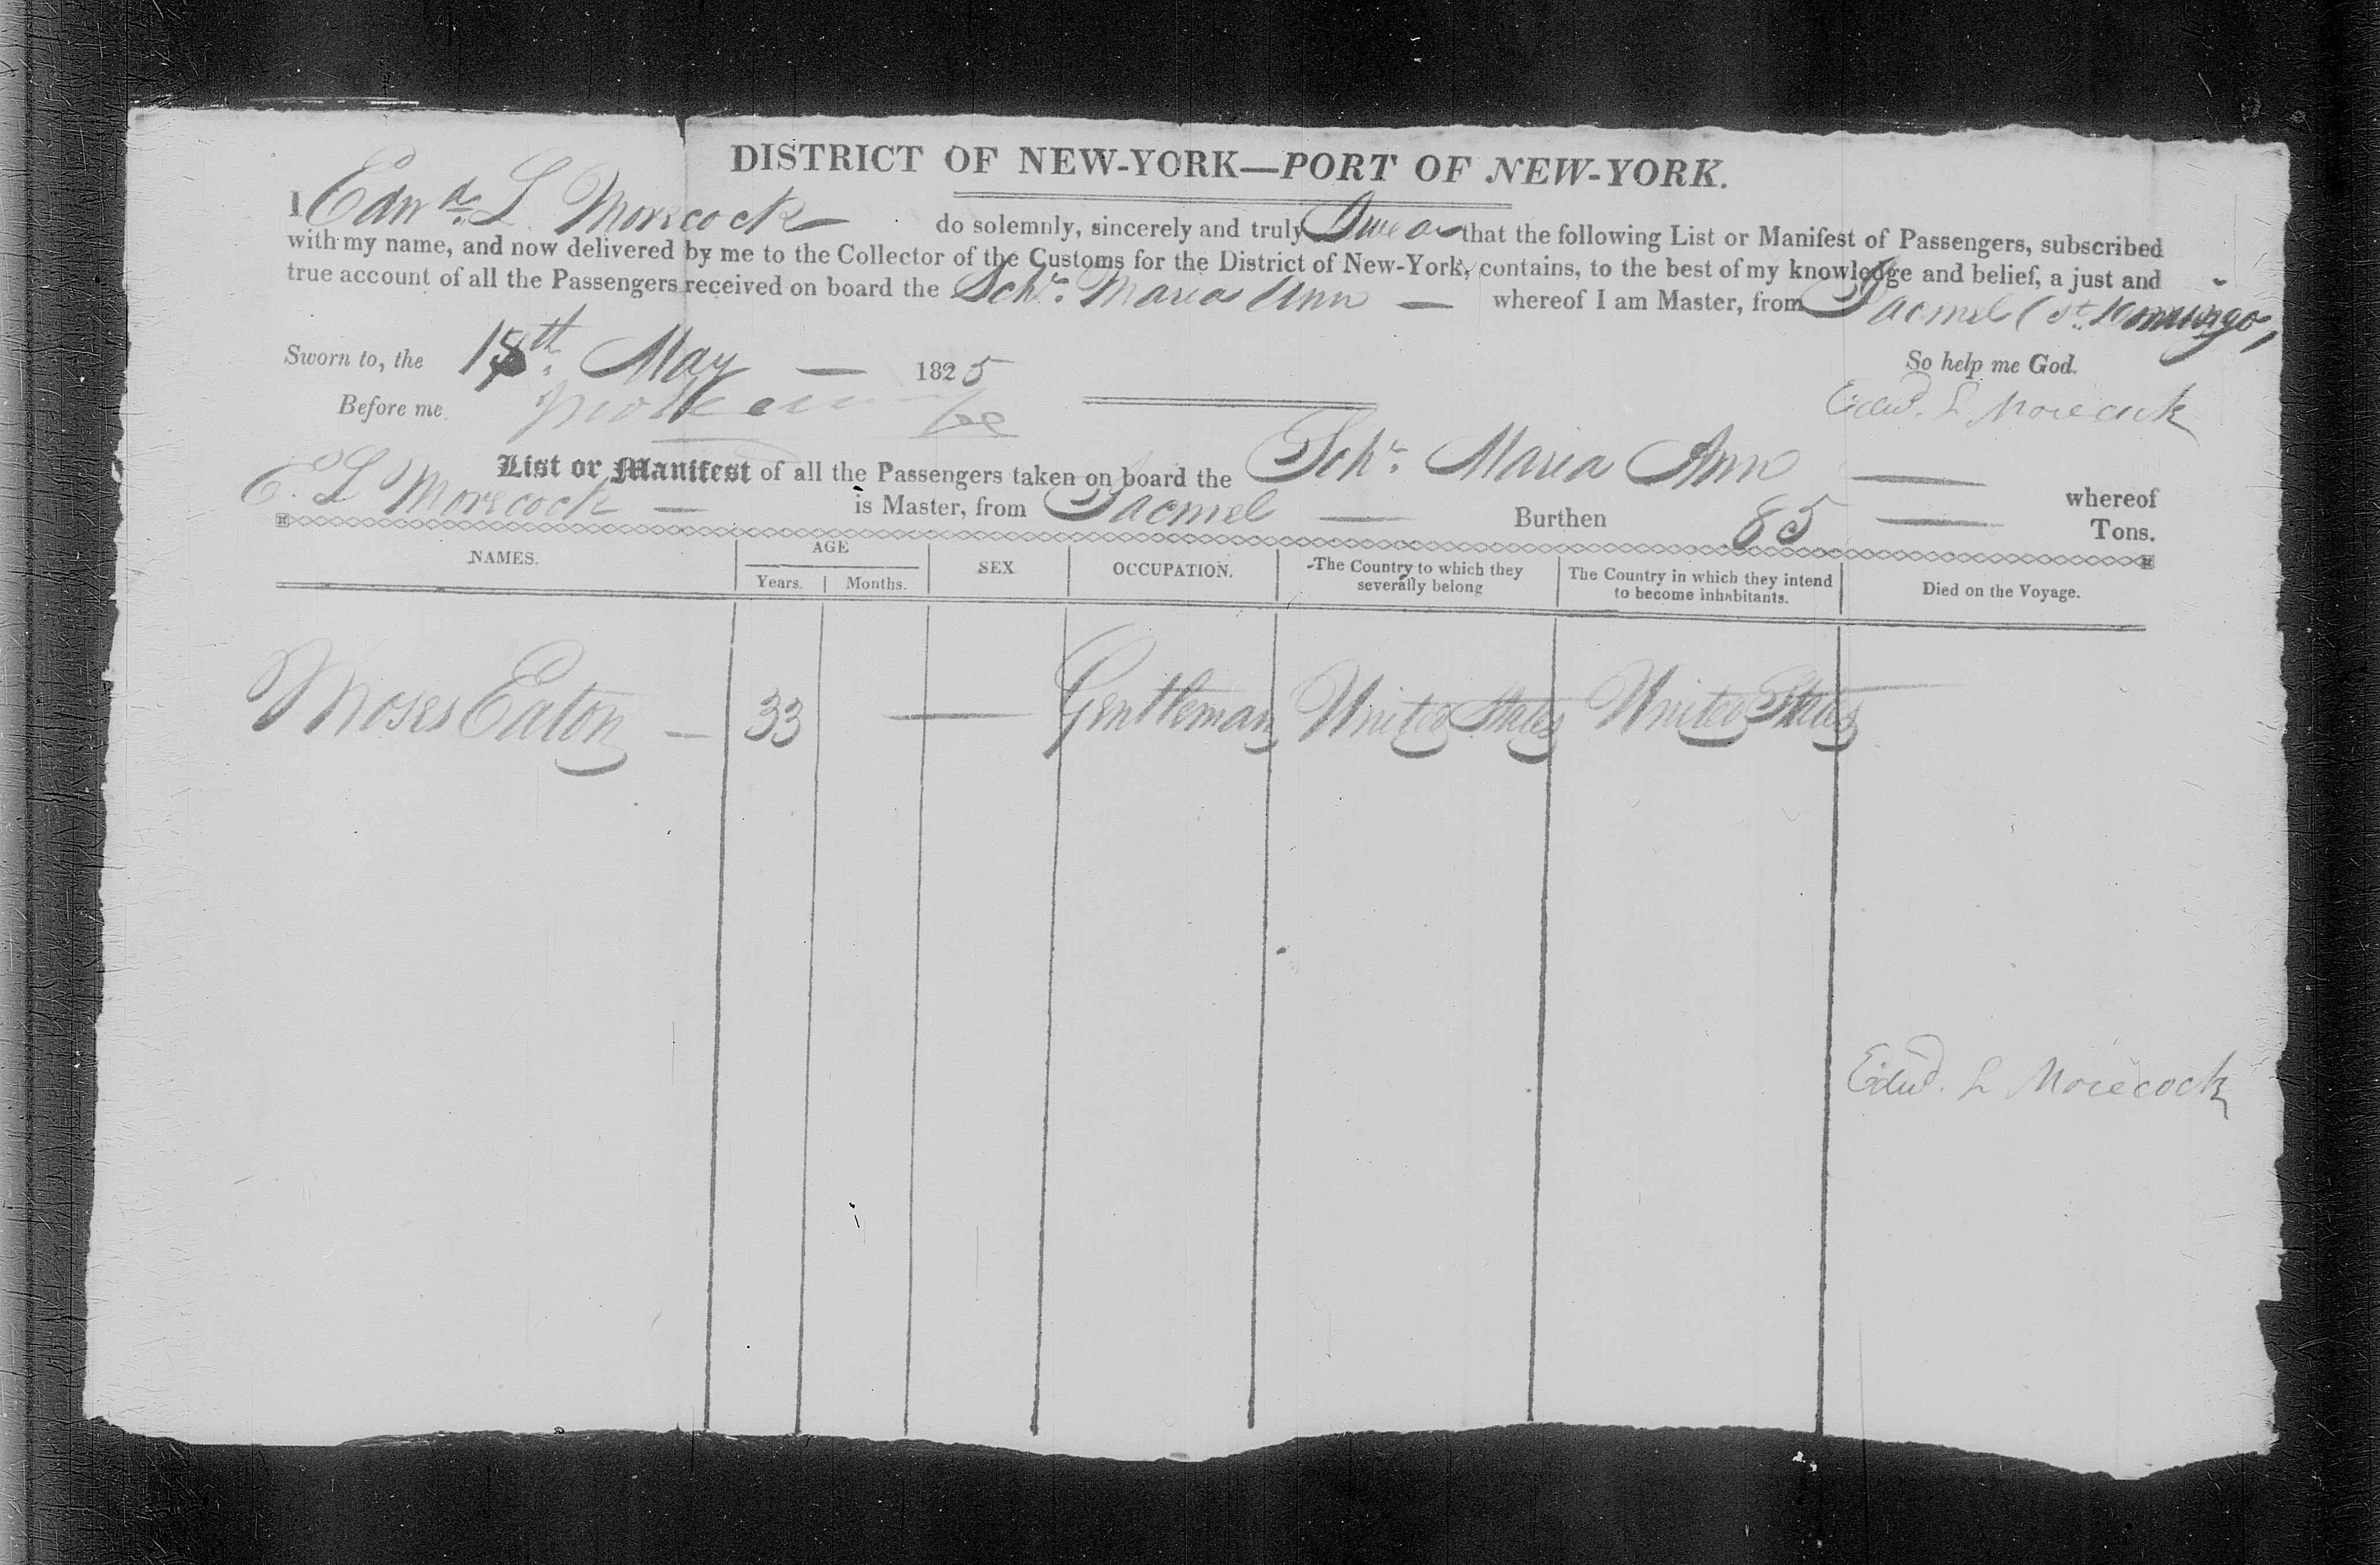 DISTRICT OF NEW-YORK—PORT OF NEW-YORK.
I Edwd. L Morecock do solemnly, sincerely and truly Swear that the following List or Manifest of Passengers, subscribed
with my name, and now delivered by me to the Collector of the Customs for the District of New-York, contains, to the best of my knowledge and belief, a just and
true account of all the Passengers received on board the Schr. Maria Ann — whereof I am Master, from Jacmel (St. Domingo,
Sworn to, the 18th. May — 1825 So help me God.
Before me Edwd. L Morecock
List or Manifest of all the Passengers taken on board the Schr. Maria Ann — whereof
E. L Morecock — is Master, from Jacmel — Burthen 85 — Tons.
NAMES. AGE SEX OCCUPATION. The Country to which they severally belong The Country in which they intend to become inhabitants. Died on the Voyage.
Years. Months.
Moses Eaton — 33 — Gentleman United States United States
Edwd. L Morecock